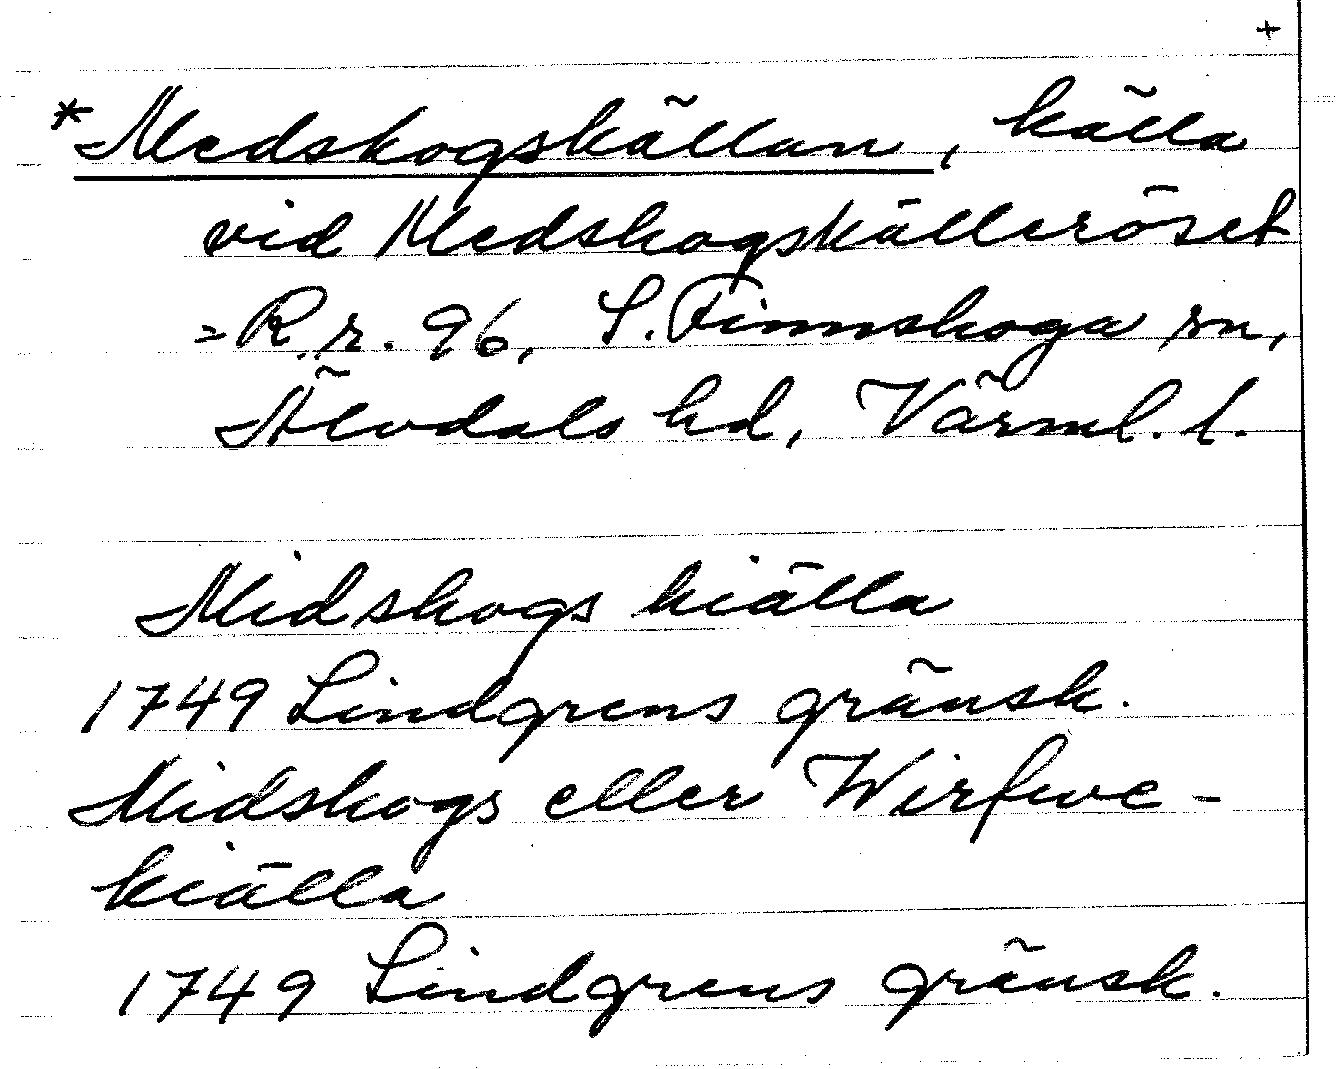 +
*Medskogskällan, källa
vid Medskogskälleröset
=R.r. 96, S. Finnskoga sn,
Älvdals hd, Värml. l.
Midskogs kiälla
1749 Lindgrens gränsk.
Midskogs eller Wirfwe-
kiälla
1749 Lindgrens gränsk.